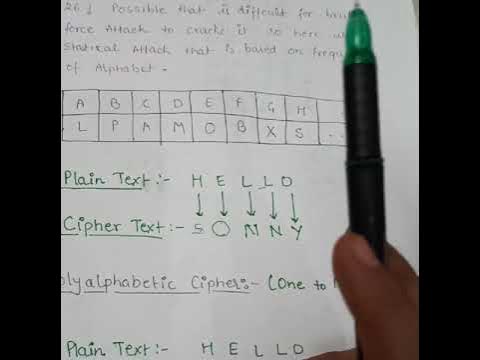 26! Possible that is difficult for
force Attack to crack it so here
Statical Attack that is based on
of Alphabet -
A B C D E F G H
L P A M O B X S ..
Plain Text:- H E L L O
Cipher Text:- S O N N Y
olyalphabetic Cipher:- (One to
Plain Text:- H E L L O